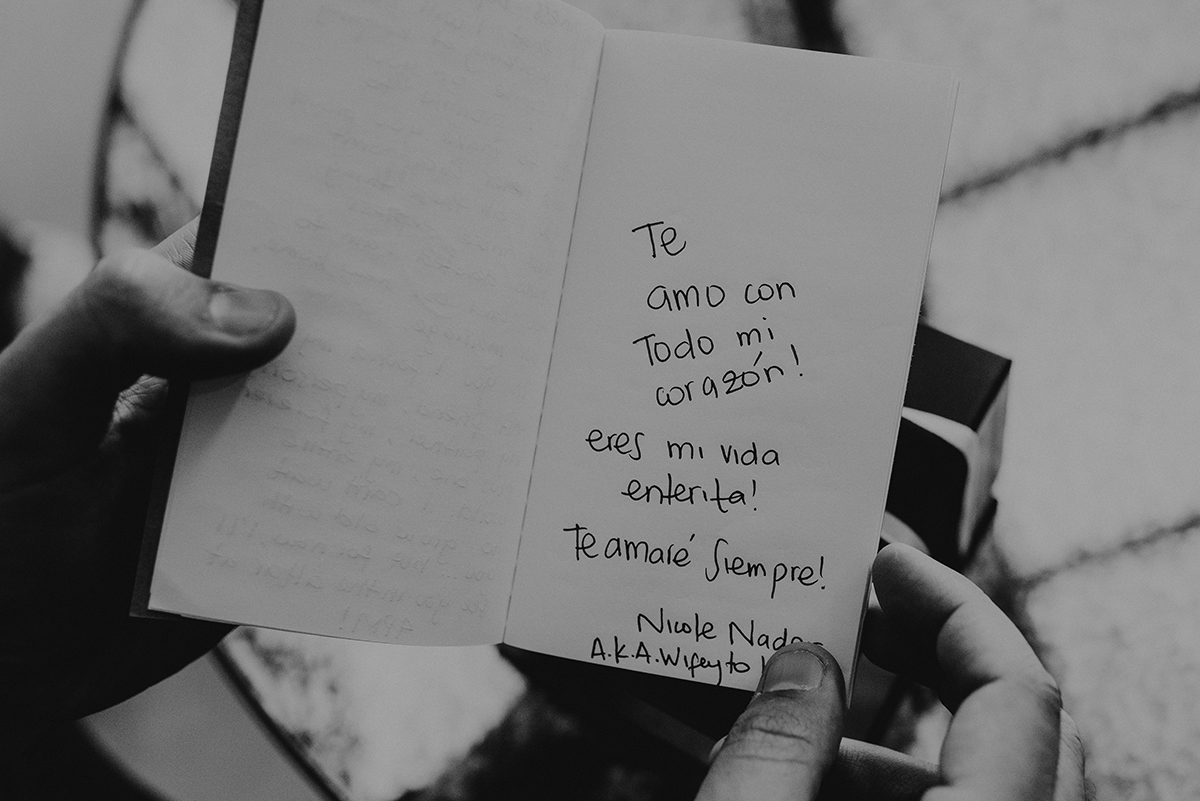 Te
amo con
Todo mi
corazón!
eres mi vida
enterita!
Te amaré siempre!
Nicole
A.K.A. Wifey to